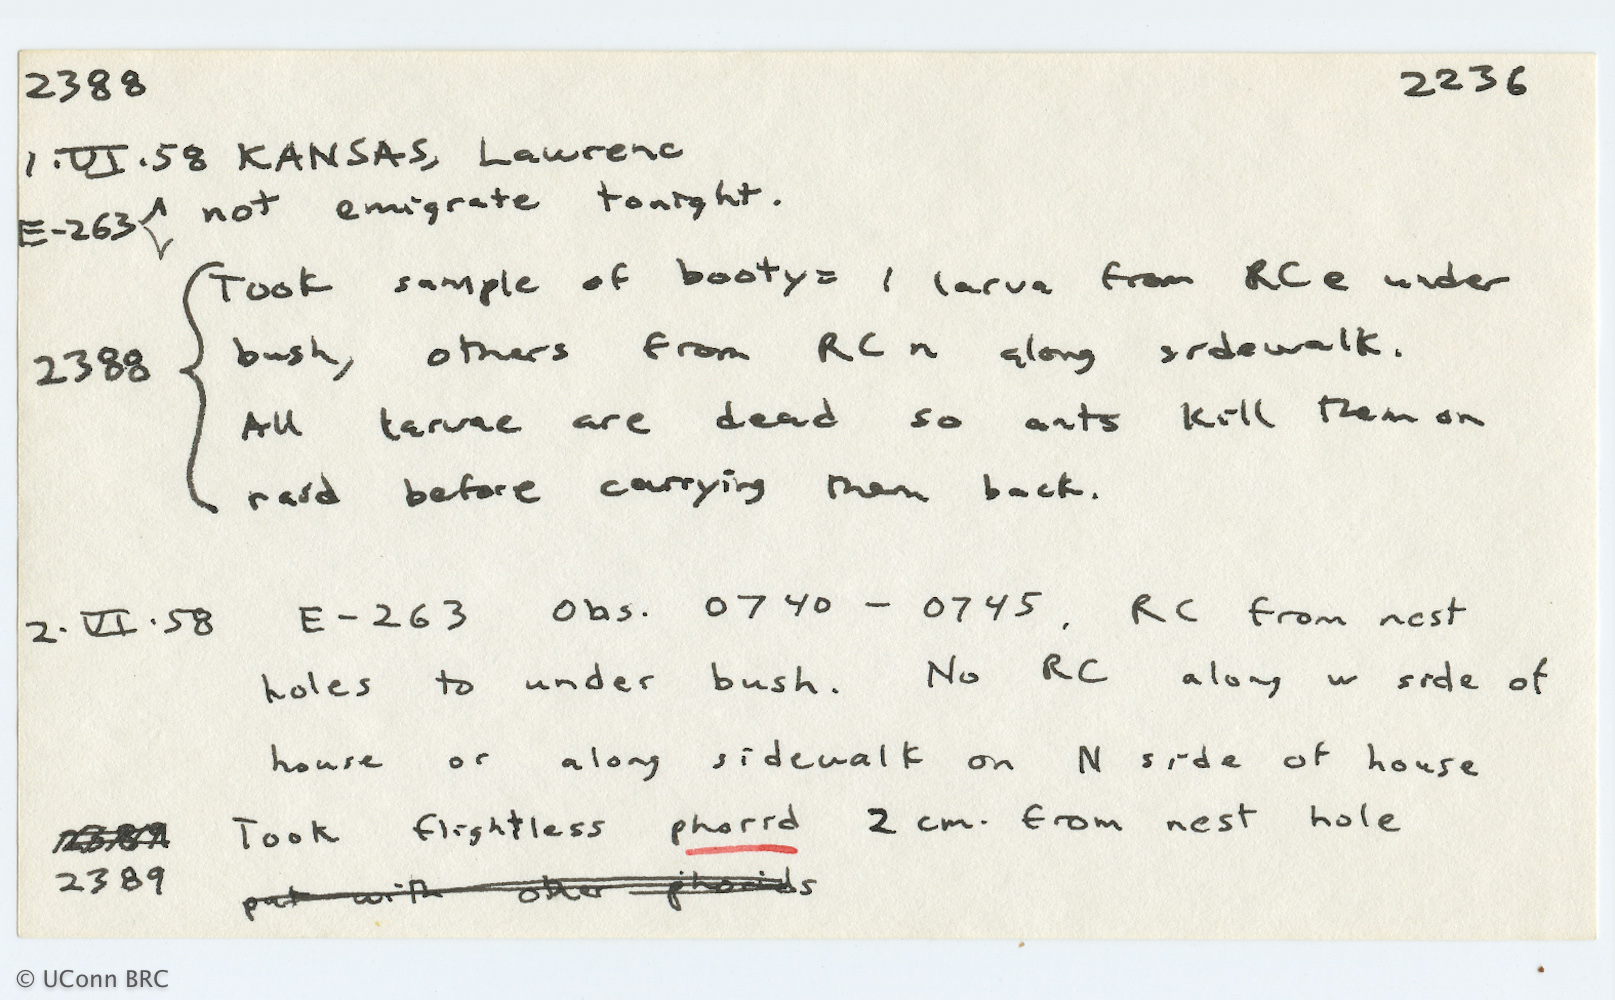 2388 2236
1.VI.58 KANSAS, Lawrenc
not emigrate tonight.
E-263
Took sample of booty= 1 larva from RC e under
bush, others from RC n along sidewalk.
2388
All larvae are dead so ants kill them on
raid before carrying them back.
2.VI.58 E-263 Obs. 0740 - 0745. RC from nest
holes to under bush. No RC along w side of
house or along sidewalk on N side of house
2389 Took flightless phorid 2 cm. from nest hole
2389 put with other phorids
© UConn BRC